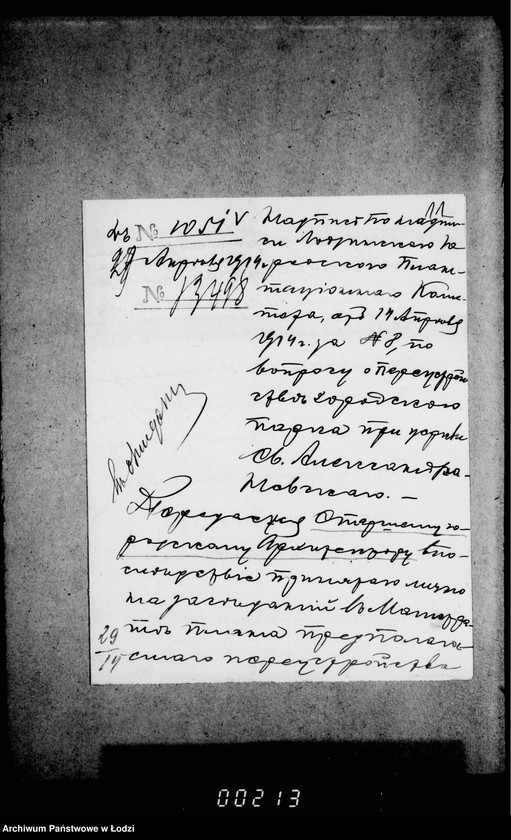 11
Къ № 1051 V
29 Апрѣля 1914 г.
№ 13498
Надпись по надпи-
си Лодзинскаго го-
родского План-
таціоннаго Коми-
тета, отъ 14 Апрѣля
1914 г. за № 8, по
вопросу о переустрой-
ствѣ городского
парка при церкви
Св. Александра-
Невскаго. —
Къ ожиданію
Передается Старшему го-
родскому Архитектору впо-
слѣдствіе принятаго
на засѣданіи въ Магистра-
тѣ плана предполагае-
маго переустройства
29/IV
00213
Archiwum Państwowe w Łodzi